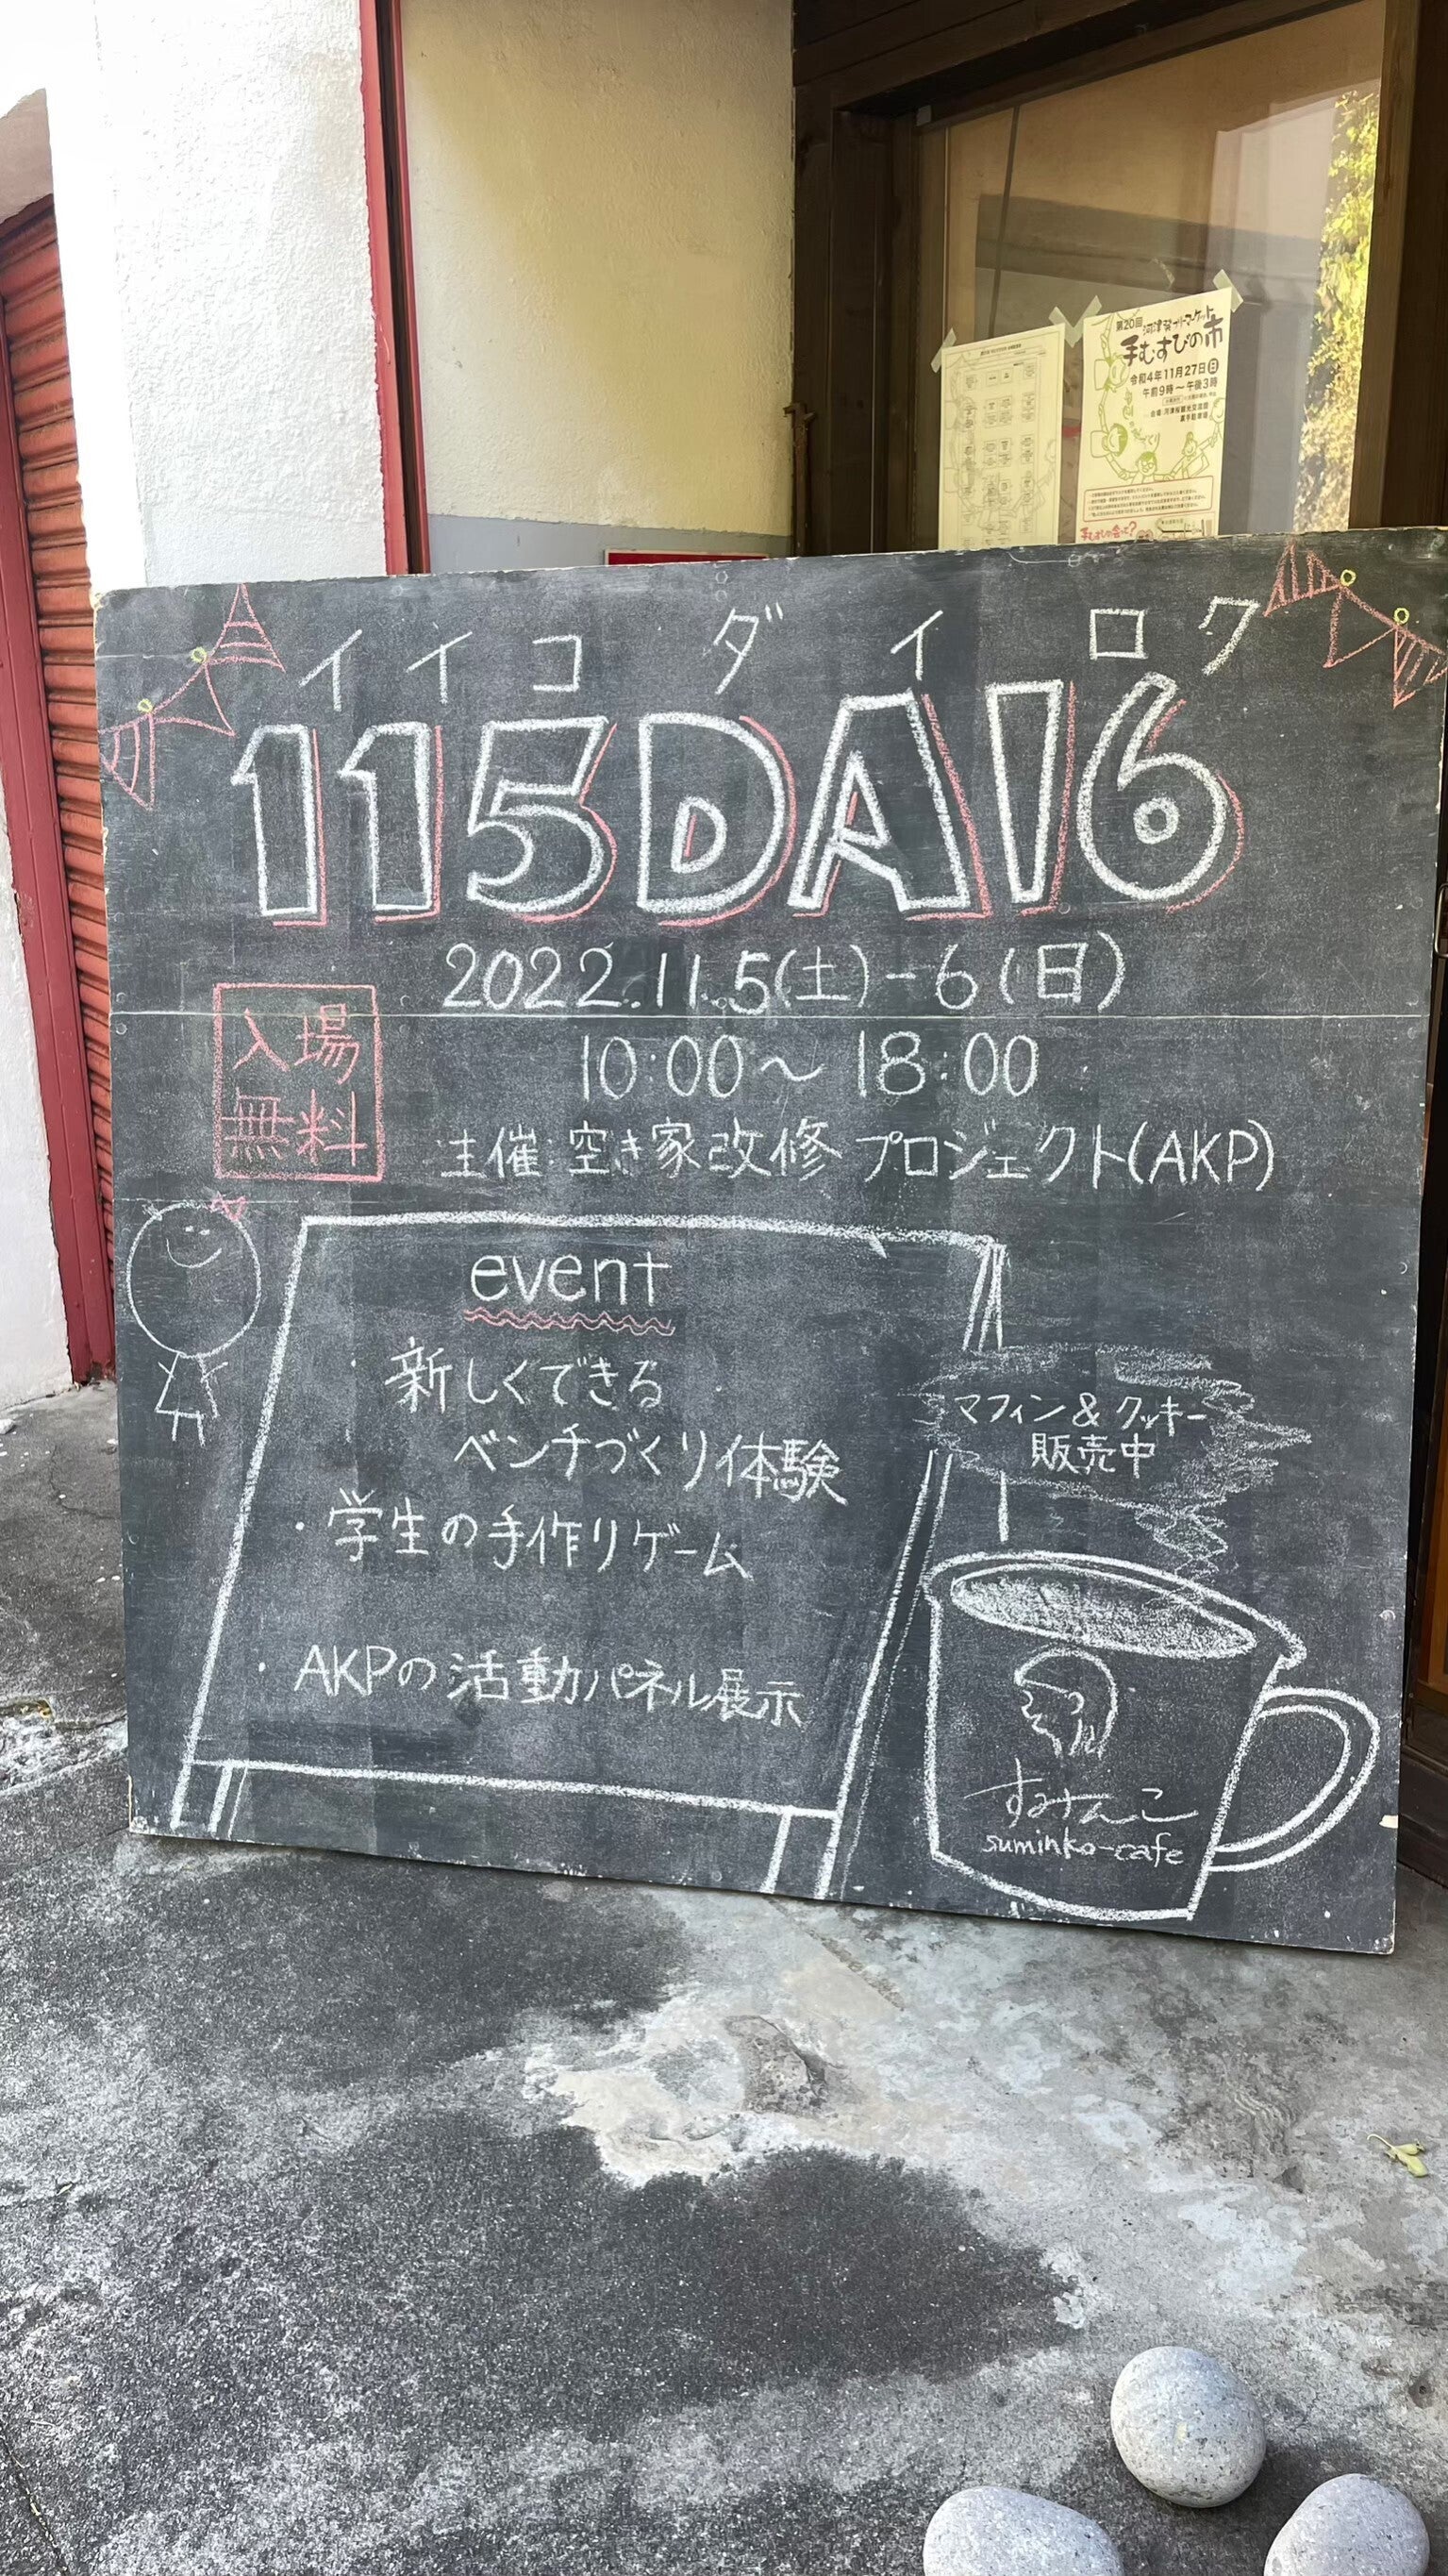 第20回 河津発フリーマーケット
手むすびの市
令和4年11月27日(日)
午前9時～午後3時
イイコダイロク
115DAI6
2022.11.5(土)-6(日)
入場
無料
10:00～18:00
主催:空き家改修プロジェクト(AKP)
event
・新しくできる
ベンチづくり体験
・学生の手作りゲーム
・AKPの活動パネル展示
マフィン&クッキー
販売中
すみんこ
suminko-cafe